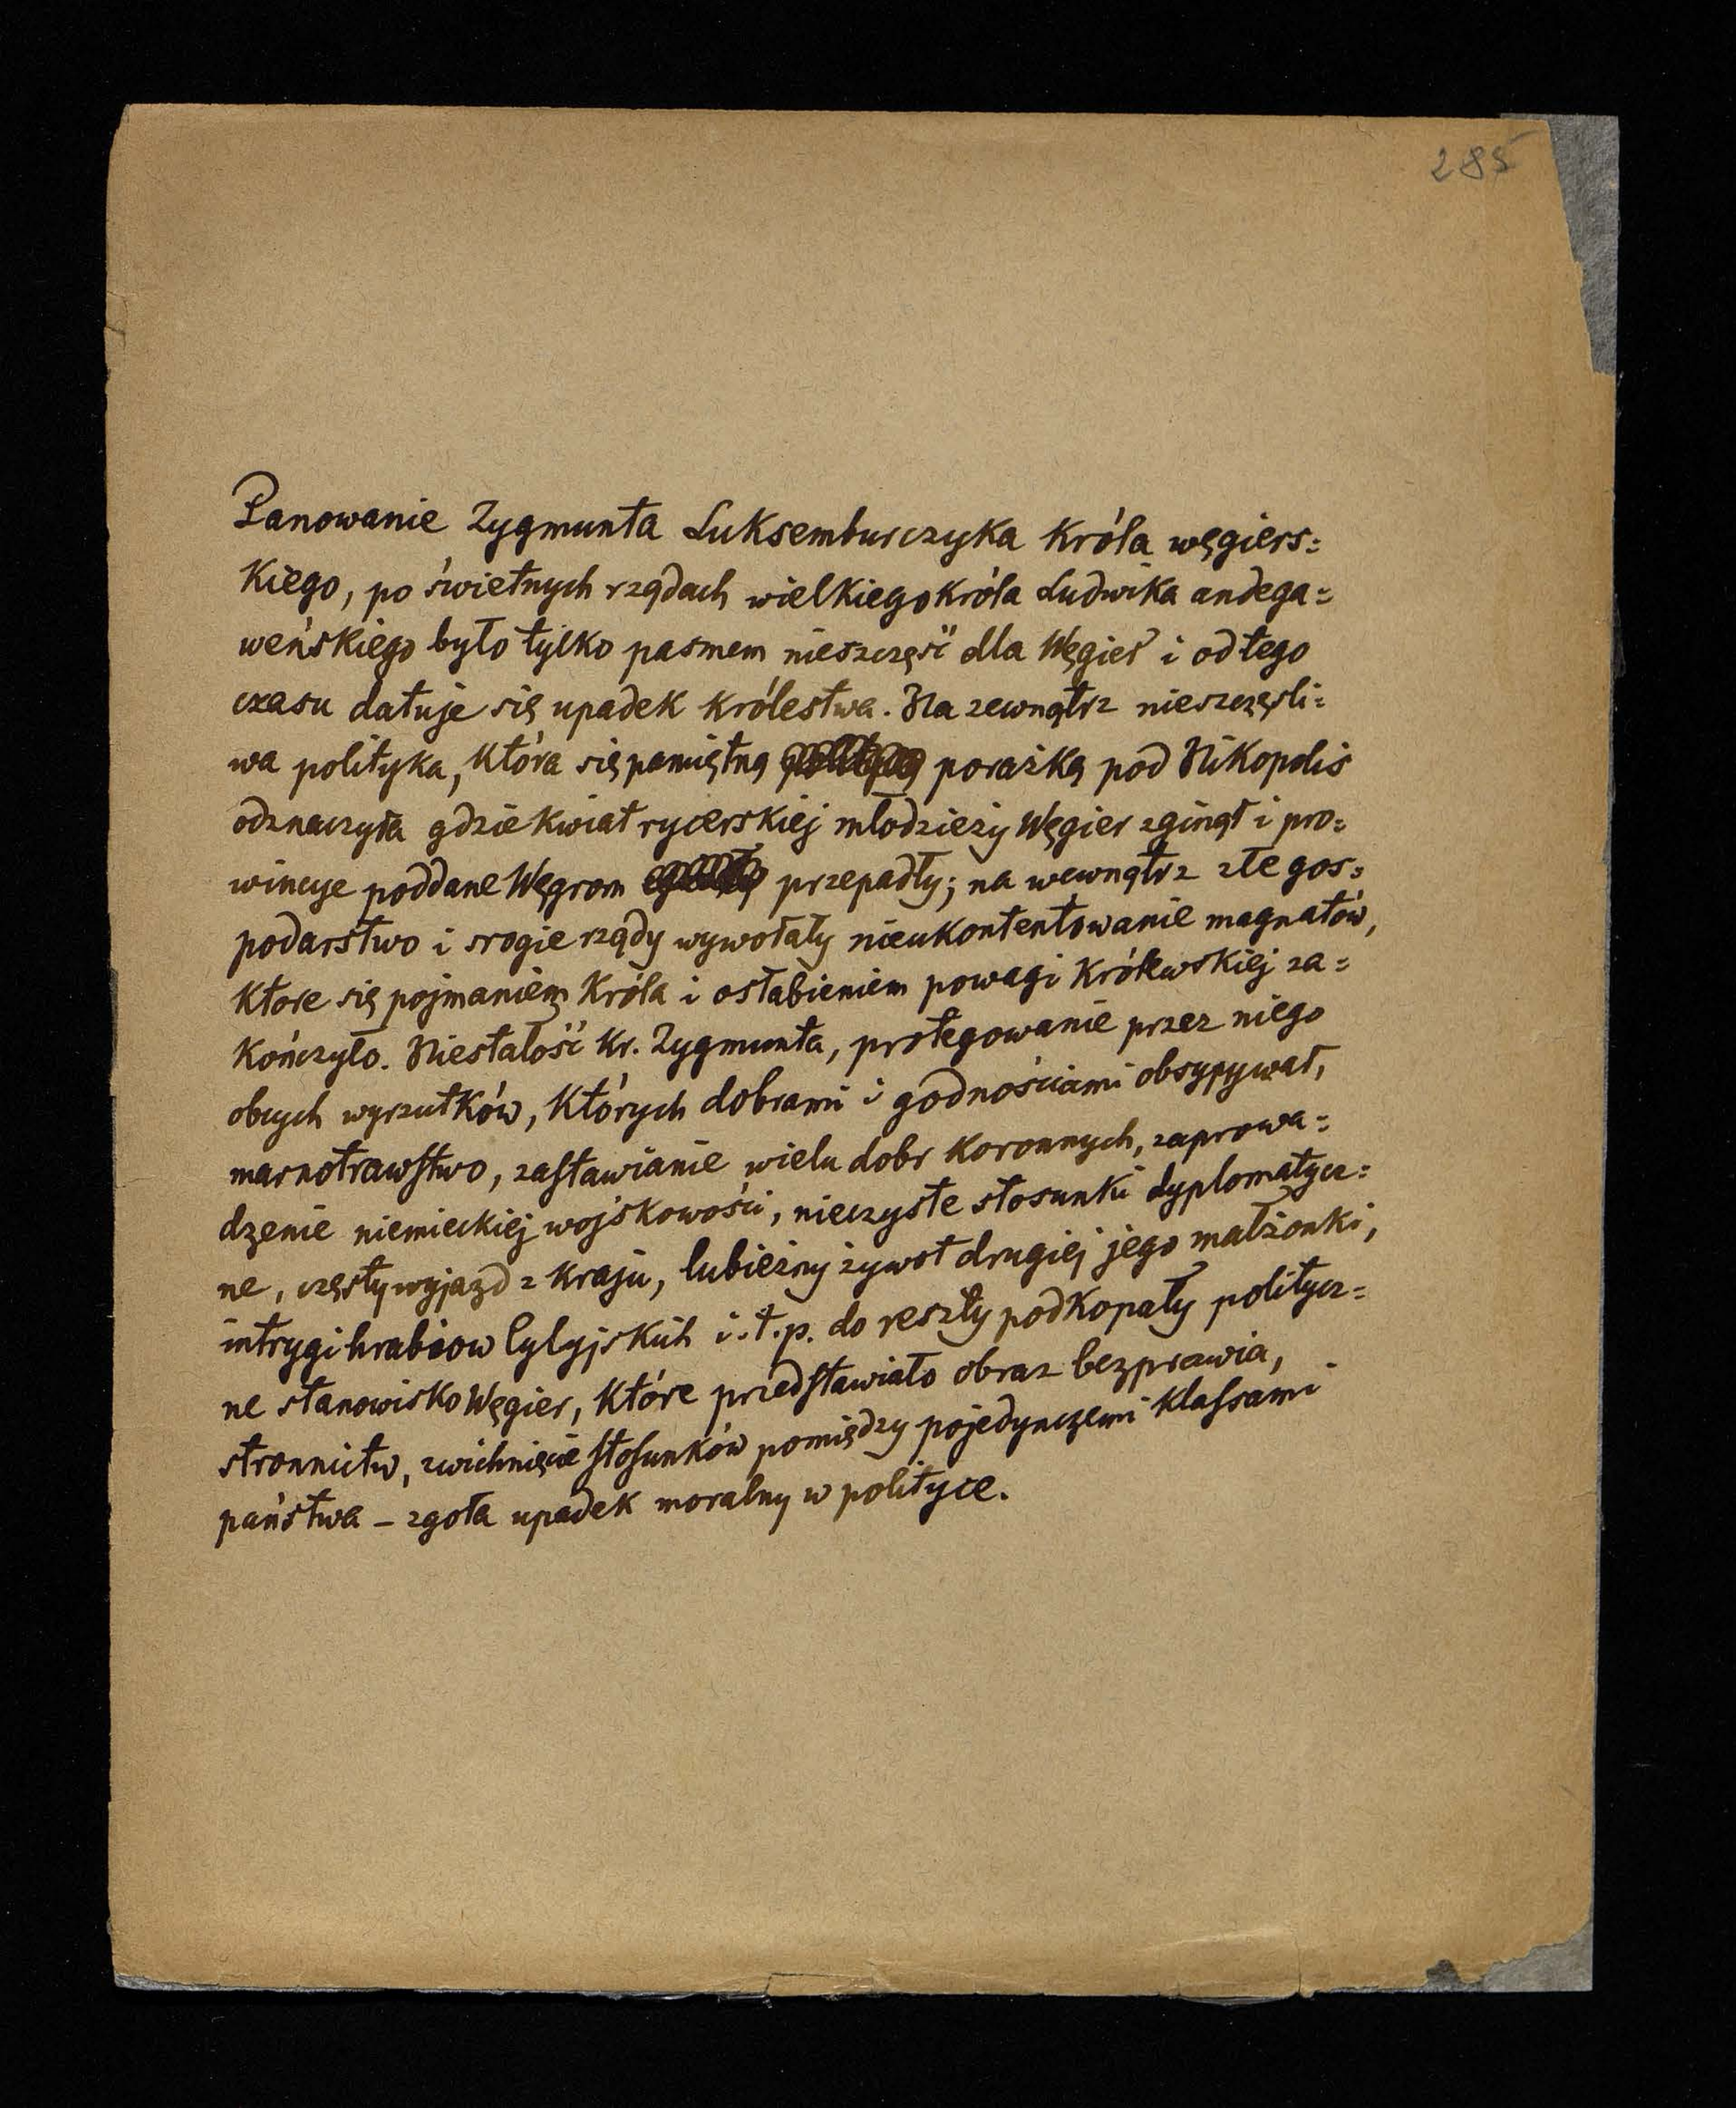 285
Panowanie Zygmunta Luksemburczyka Króla węgiers=
Kiego, po świetnych rządach wielkiego króla Ludwika andega=
weńskiego było tylko pasmem nieszczęść dla Węgier i od tego
czasu datuje się upadek królestwa. Na zewnątrz nieszczęśli=
wa polityka, która się pamiętną porażką pod Nikopolis
odznaczyła gdzie kwiat rycerskiej młodzieży Węgier zginął i pro=
wincye poddane Węgrom przepadły; na wewnątrz złe gos=
podarstwo i srogie rządy wywołały nieukontentowanie magnatów,
które się pojmaniem Króla i osłabieniem powagi Królewskiej za=
kończyło. Niestałość Kr. Zygmunta, protegowanie przez niego
obcych wyrzutków, których dobrami i godnościami obsypywał,
marnotrawstwo, zastawianie wielu dobr koronnych, zaprowa=
dzenie niemieckiej wojskowości, nieczyste stosunki dyplomatycz=
ne, częsty wyjazd z kraju, lubieżny żywot drugiej jego małżonki,
intrygi hrabiow Cylyjskich i.t.p. do reszty podkopały politycz=
ne stanowisko Węgier, które przedstawiało obraz bezprawia,
stronnictw, zwichnięcie stosunków pomiędzy pojedynczemi klassami
państwa – zgoła upadek moralny w polityce.